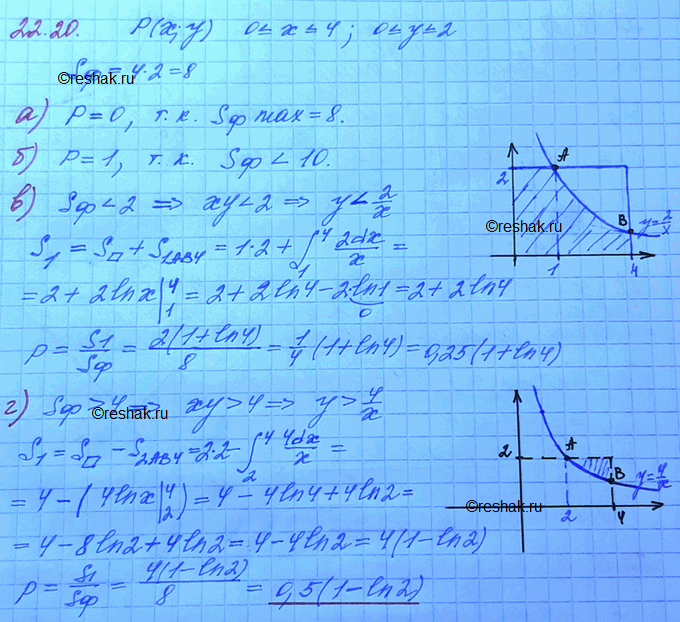 22.20. P(x; y) 0 ≤ x ≤ 4; 0 ≤ y ≤ 2
Sф = 4·2 = 8
©reshak.ru
а) P = 0, т.к. Sф max = 8.
б) P = 1, т.к. Sф < 10.
в) Sф < 2 ⟹ xy < 2 ⟹ y < 2/x
S₁ = S□ + S₁ₐв₄ = 1·2 + ∫₁⁴ 2dx/x =
= 2 + 2lnx|₁⁴ = 2 + 2ln4 − 2ln1 = 2 + 2ln4
0
P = S1/Sф = 2(1+ln4)/8 = 1/4 (1+ln4) = 0,25(1+ln4)
2 A B y=2/x 1 4
©reshak.ru
г) Sф > 4 ⟹ xy > 4 ⟹ y > 4/x
©reshak.ru
S₁ = S□ − S₂ᴀʙ₄ = 2·2 − ∫₂⁴ 4dx/x =
= 4 − (4lnx|₂⁴) = 4 − 4ln4 + 4ln2 =
= 4 − 8ln2 + 4ln2 = 4 − 4ln2 = 4(1−ln2)
P = S1/Sф = 4(1−ln2)/8 = 0,5(1−ln2)
2 A B y=4/x 2 4
©reshak.ru